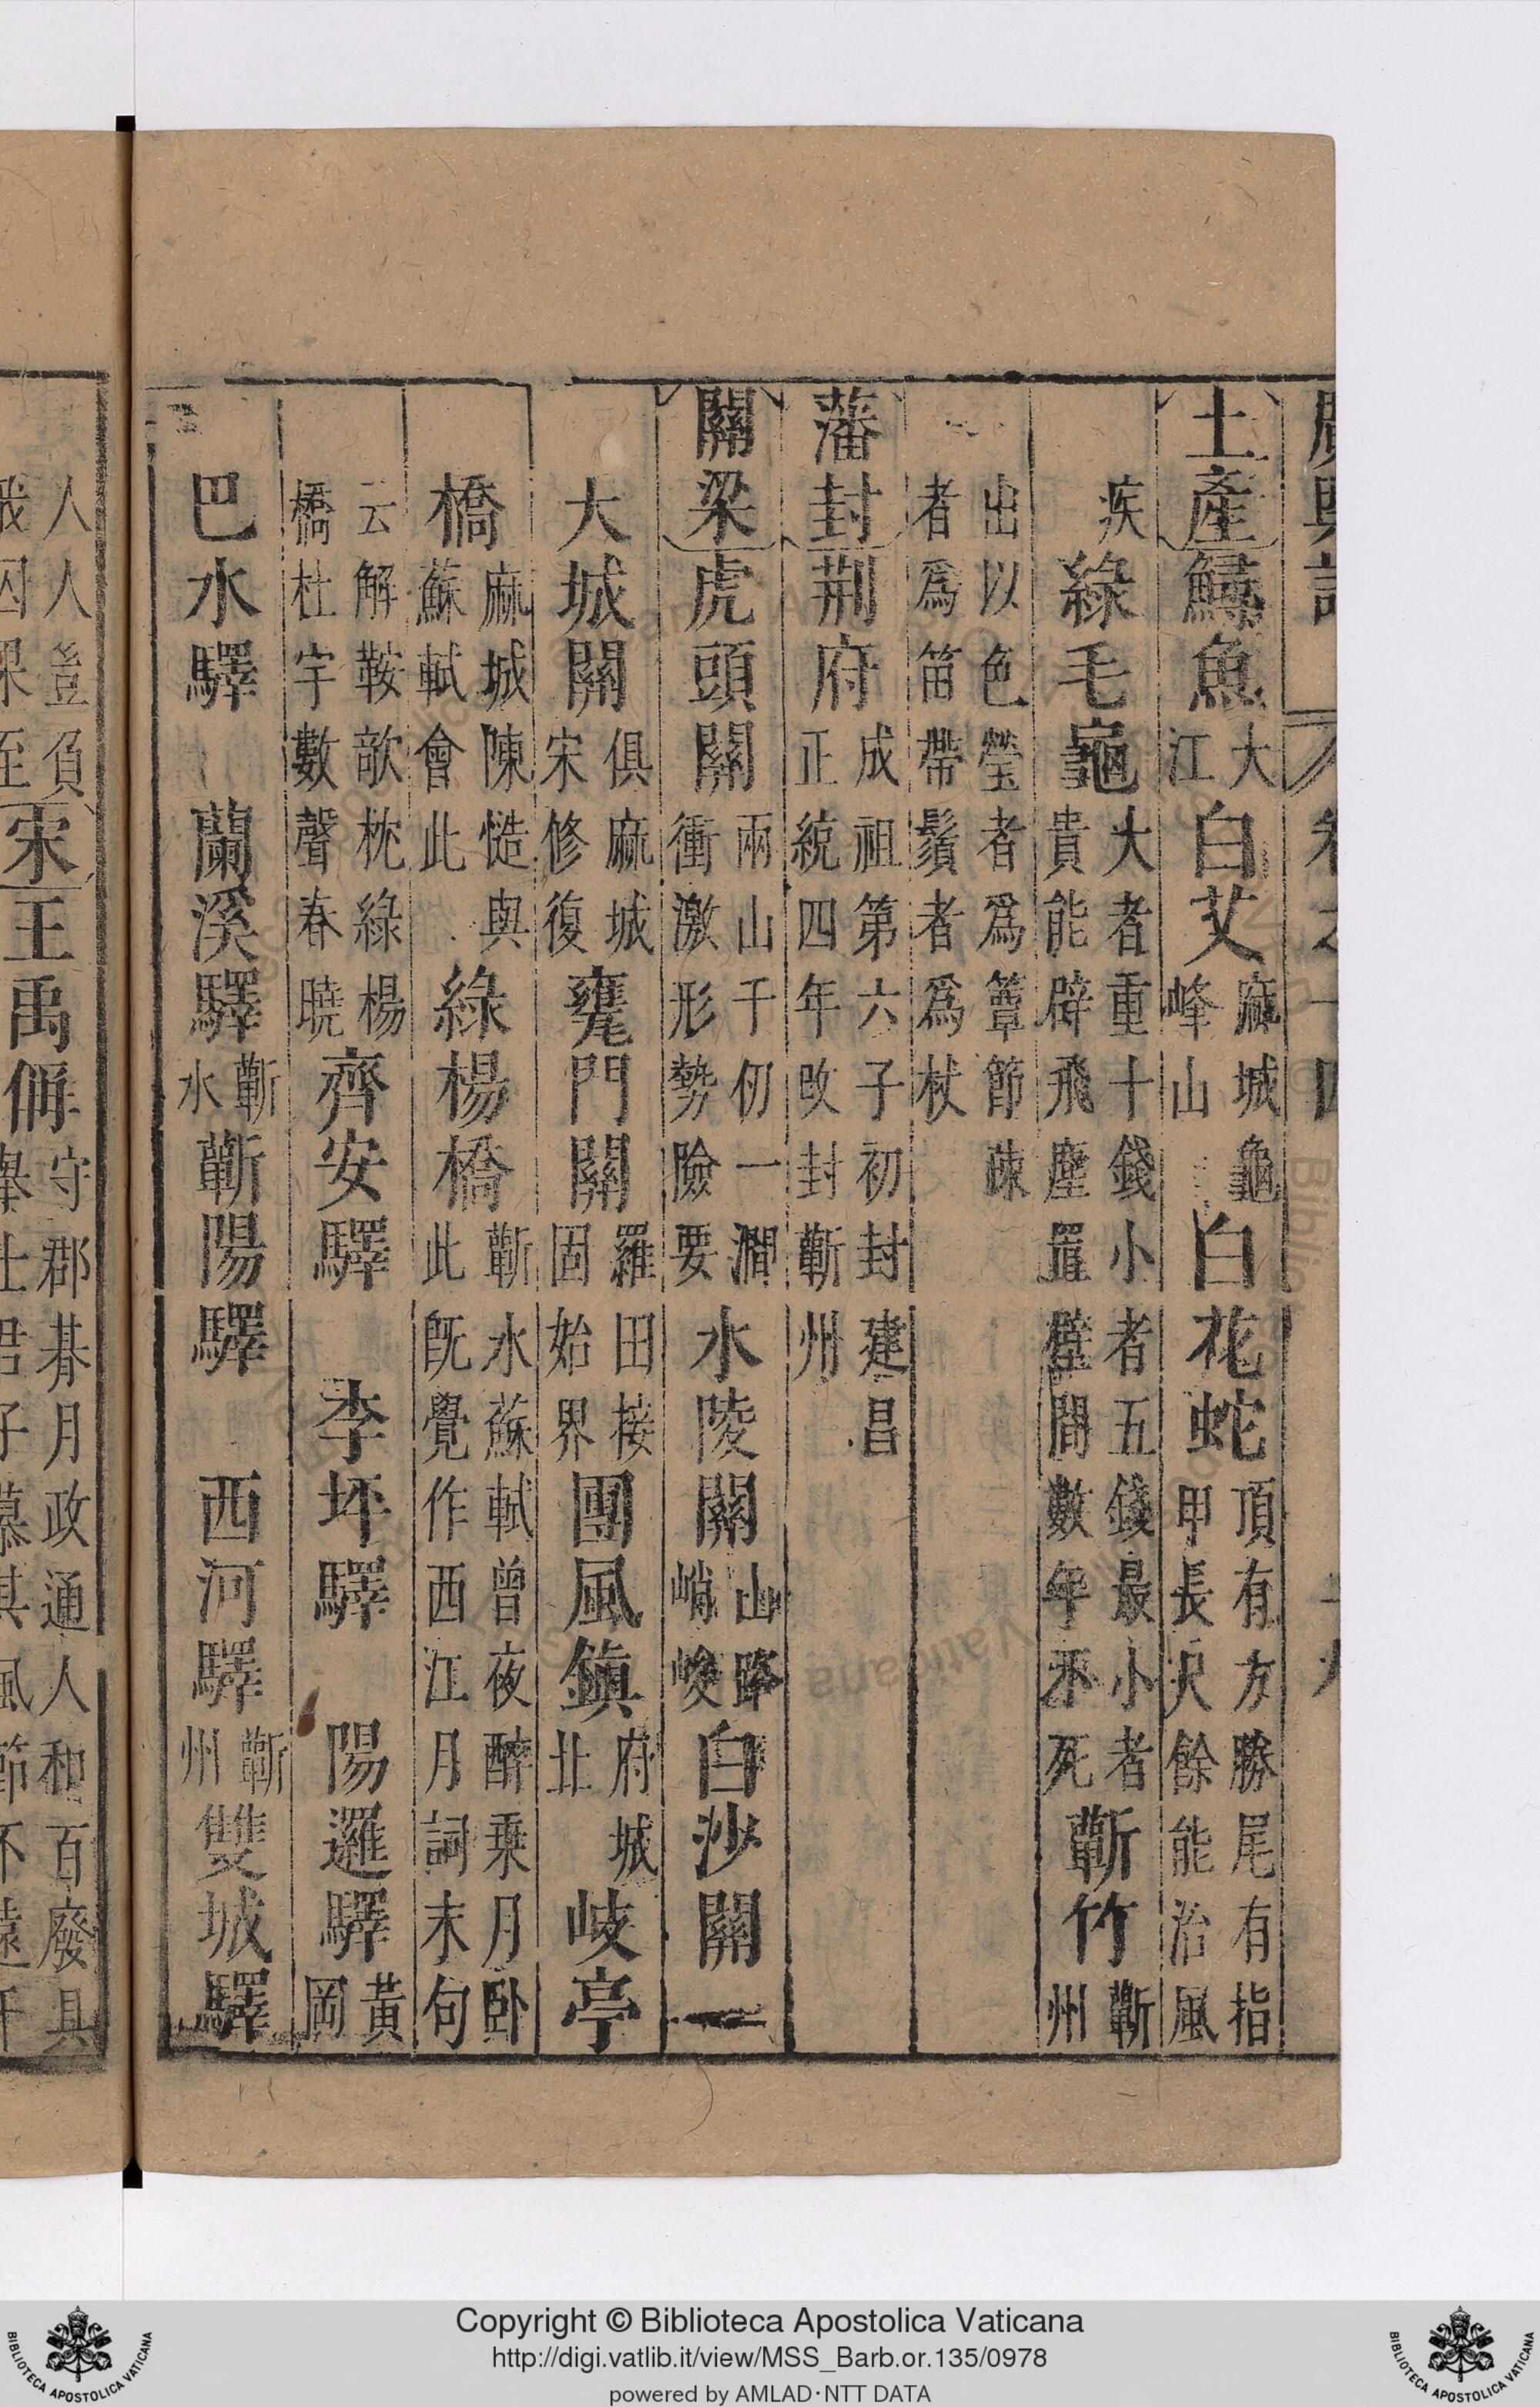 土產鱘魚大江白艾麻城龜峰山白花蛇頂有方勝尾有指甲長尺餘能治風
疾綠毛龜大者重十錢小者五錢最小者貴能辟飛塵置壁間數年不死蘄竹蘄州
出以色瑩者爲簟節疎者爲笛帶鬚者爲杖
藩封荆府成祖第六子初封建昌正統四年改封蘄州
關梁虎頭關兩山千仞一澗衝激形勢險要水陵關山路峭峻白沙關
大城關俱麻城宋修復甕門關羅田接固始界團風鎮府城北岐亭
橋麻城陳慥與蘇軾會此綠楊橋蘄水蘇軾曾夜醉乘月卧此旣覺作西江月詞末句
云解鞍欹枕綠楊橋杜宇數聲春曉齊安驛李坪驛陽邏驛黃岡
巴水驛蘭溪驛蘄水蘄陽驛西河驛蘄州雙城驛
人人豈負
宋王禹偁守郡朞月政通人和百廢具
Copyright © Biblioteca Apostolica Vaticana
http://digi.vatlib.it/view/MSS_Barb.or.135/0978
powered by AMLAD·NTT DATA
BIBLIOTECA APOSTOLICA VATICANA
BIBLIOTECA APOSTOLICA VATICANA